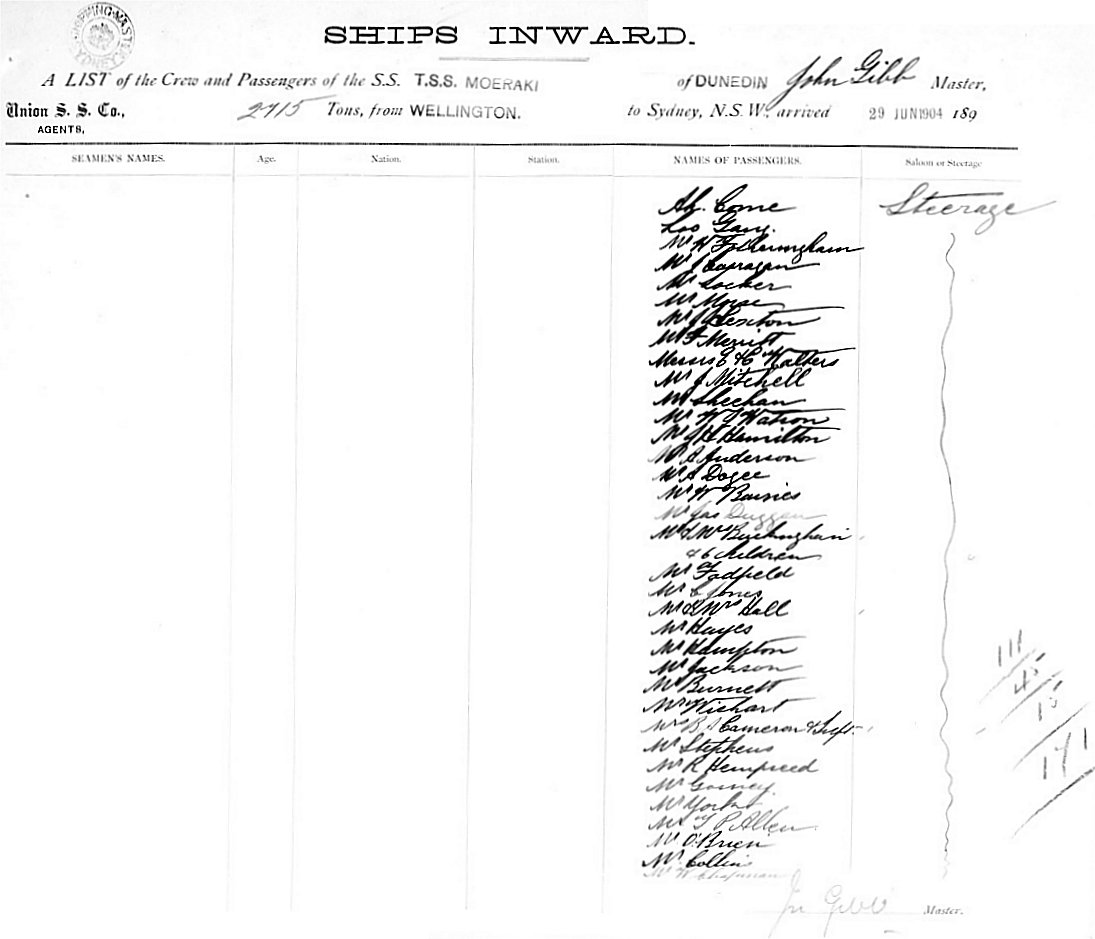 SHIPPING MASTER SYDNEY
SHIPS INWARD.
A LIST of the Crew and Passengers of the S.S. T.S.S. MOERAKI of DUNEDIN John Gibb Master,
Union S. S. Co., AGENTS, 2715 Tons, from WELLINGTON. to Sydney, N.S.W., arrived 29 JUN 1904 189
SEAMEN'S NAMES. Age. Nation. Station. NAMES OF PASSENGERS. Saloon or Steerage
Ah. Come Steerage
Loo Gang.
Mr W Fotheringham
Mr J
Mr Locker
Mr Morse
Mr J Sexton
Mr F Merritt
Messrs E & C Walters
Mr J Mitchell
Mr Sheehan
Mr W J Watson
Mr J H Hamilton
Mr A Anderson
Mr A
Mr W Baines
Mr Jas Duggan
Mr & Mrs Buckingham
& 6 children
Mr
Mr C Jones
Mr & Mrs Hall
Mr Hayes
Mr Hampton
Mr Jackson
Mr Burnett
Mr Wichart
Mrs B A Cameron &
Mr Stephens
Mr R Hempseed
Mr
Mr York
Mr T P Allen
Mr O'Brien
Mr Collins
Mr W Chapman
111
45
15
171
Jn Gibb Master.